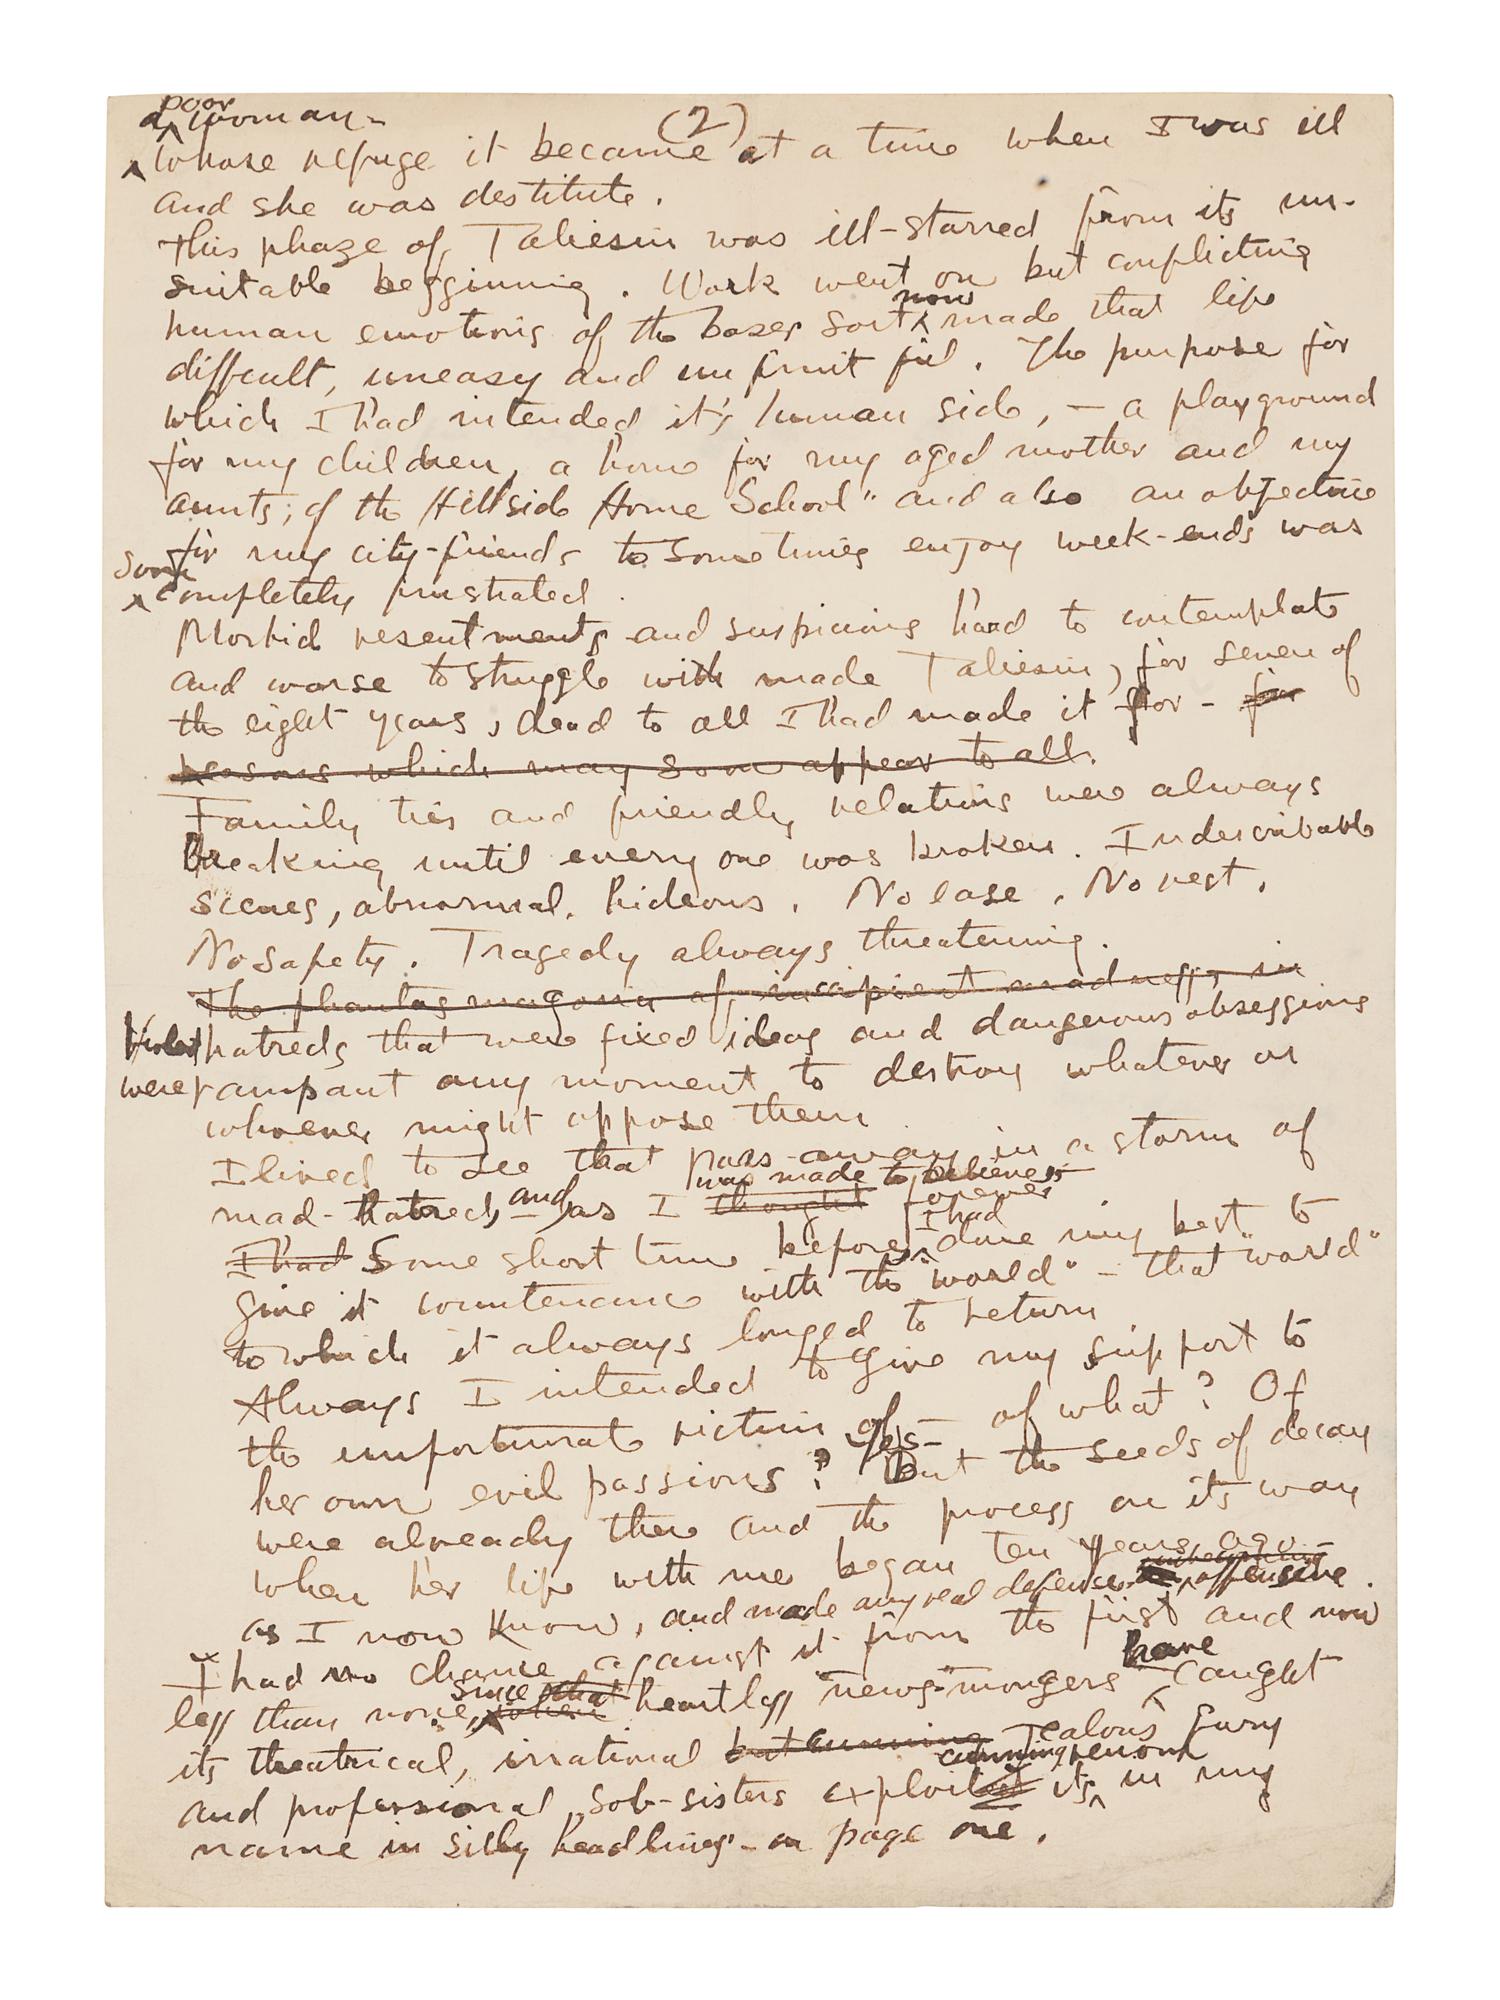 a poor woman -
(2)
whose refuge it became at a time when I was ill
and she was destitute.
This phaze of Taliesin was ill-starred from its un-
suitable begginning. Work went on but conflicting
human emotions of the baser sort now made that life
difficult, uneasy and unfruitful. The purpose for
which I had intended it's human side, - a playground
for my children, a home for my aged mother and my
aunts, of the Hillside Home School" and also an objective
for my city-friends to sometimes enjoy week-ends was
soon completely frustrated.
Morbid resentments and suspicions hard to contemplate
and worse to struggle with made Taliesin, for seven of
the eight years, dead to all I had made it for - for
reasons which may soon appear to all.
Family ties and friendly relations were always
breaking until every one was broken. Indescribable
scenes, abnormal, hideous. No ease. No rest.
No safety. Tragedy always threatening.
The phantasmagoria of incipient madness, in
Violent hatreds that were fixed ideas and dangerous obsessions
were rampant any moment to destroy whatever or
whoever might oppose them
I lived to see that pass away in a storm of
was made to believe
mad-hatred, and as I thought forever
I had some short time before, I had done my best to
give it countenance with the "world" - that "world"
to which it always longed to return
Always I intended to give my support to
the unfortunate victim of - of what? Of
her own evil passions? Yes - But the seeds of decay
were already there and the process on its way
when her life with me began ten years ago
as I now know, and made any real defense offensive.
I had no chance against it from the first and now
less than none, since that when heartless "news-mongers" have caught
its theatrical, irrational but cunning jealous fury
and professional "sob-sisters exploited its cunning venom in my
name in silly headlines - on page one.